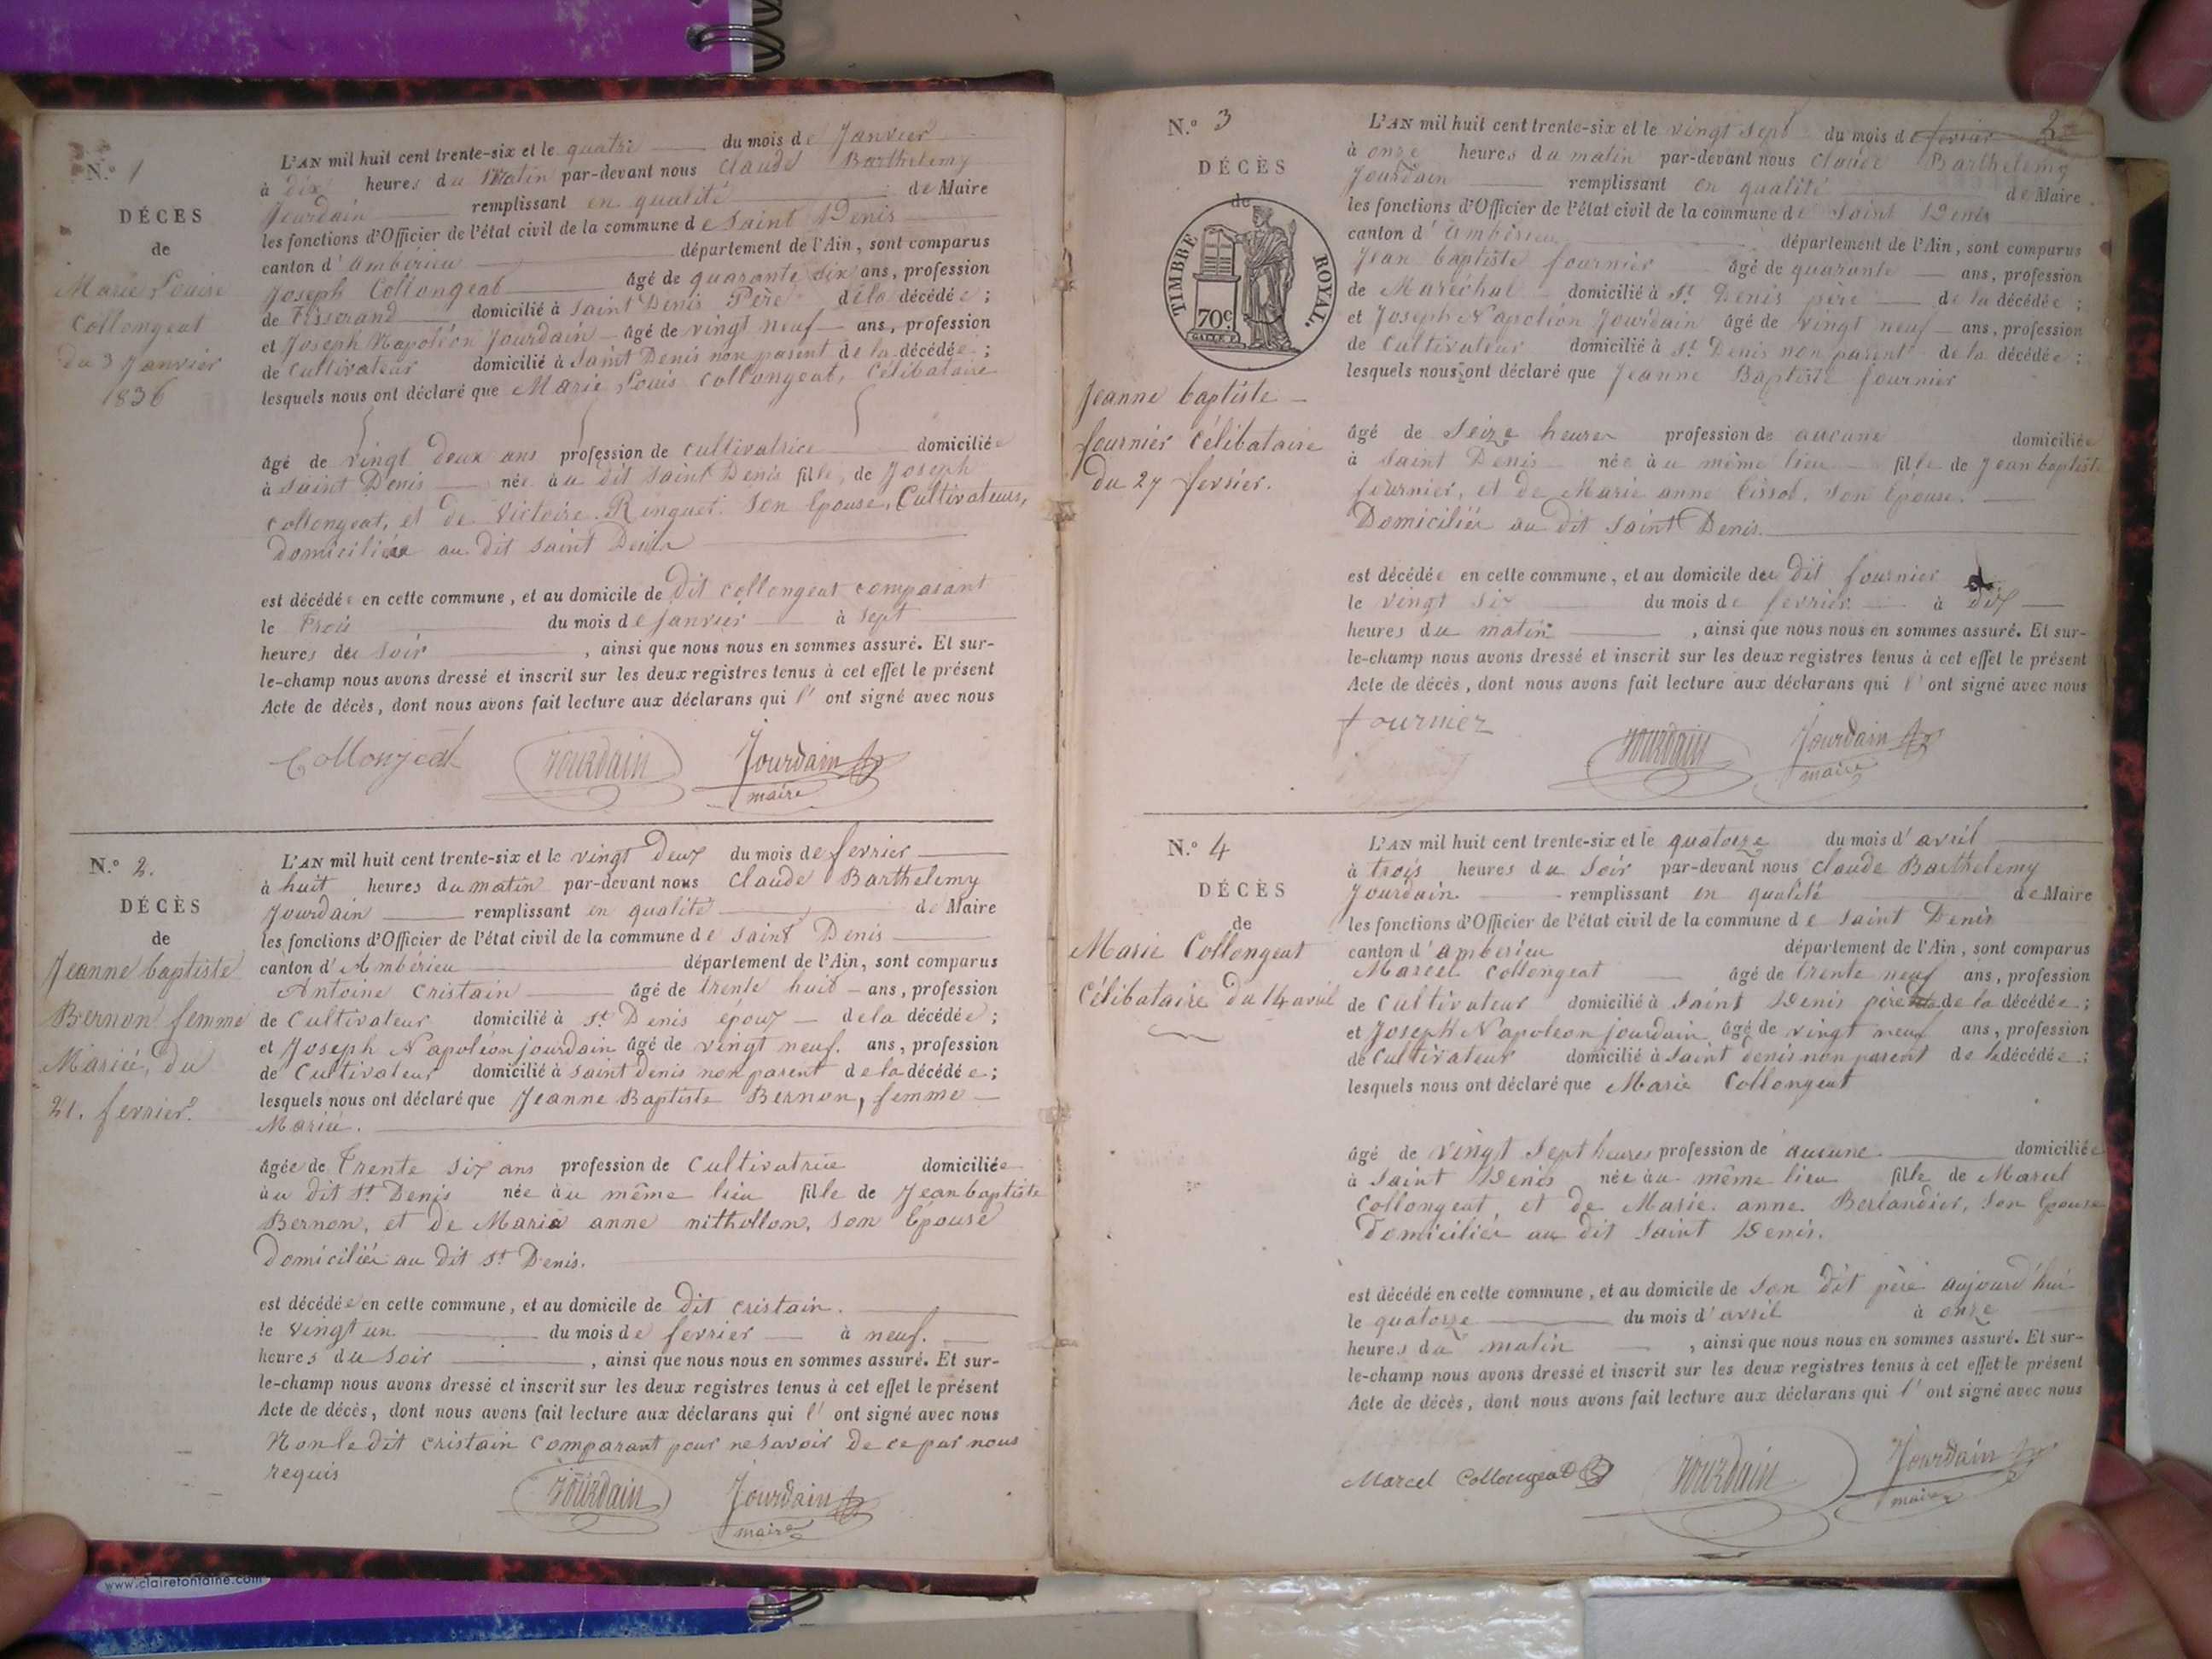 N.º 1
DÉCES
de
Marie Louise
Collongeat
du 3 Janvier
1836
L'AN mil huit cent trente-six et le quatre du mois de Janvier
à dix heures du Matin par-devant nous Claude Barthelemy
Jourdain remplissant en qualité de Maire
les fonctions d'Officier de l'état civil de la commune de Saint Denis
canton d'ambérieu département de l'Ain, sont comparus
Joseph Collongeat âgé de quarante six ans, profession
de Tisserand domicilié à Saint Denis Père de la décédée ;
et Joseph Napoléon Jourdain âgé de vingt neuf ans, profession
de Cultivateur domicilié à Saint Denis non parent de la décédée ;
lesquels nous ont déclaré que Marie Louis Collongeat, Célibataire
âgé de vingt deux ans profession de cultivatrice domiciliée
à Saint Denis née au dit Saint Denis fille de Joseph
Collongeat, et de Victoire Ringuet son Epouse, Cultivateurs,
Domiciliée au dit Saint Denis
est décédée en cette commune, et au domicile de dit Collongeat comparant
le trois du mois de Janvier à Sept
heures du soir , ainsi que nous nous en sommes assuré. Et sur-
le-champ nous avons dressé et inscrit sur les deux registres tenus à cet effet le présent
Acte de décès, dont nous avons fait lecture aux déclarans qui l' ont signé avec nous
Collonjeat Jourdain Jourdain
maire
N.º 2.
DÉCÈS
de
Jeanne baptiste
Bernon femme
Mariée, du
21. fevrier.
L'AN mil huit cent trente-six et le vingt deux du mois de fevrier
à huit heures du matin par-devant nous Claude Barthelemy
Jourdain remplissant en qualité de Maire
les fonctions d'Officier de l'état civil de la commune de Saint Denis
canton d'Ambérieu département de l'Ain, sont comparus
Antoine Cristain âgé de trente huit ans, profession
de Cultivateur domicilié à St Denis époux de la décédée ;
et Joseph Napoleon jourdain âgé de vingt neuf. ans, profession
de Cultivateur domicilié à Saint denis non parent de la décédée ;
lesquels nous ont déclaré que Jeanne Baptiste Bernon, femme
Mariée.
âgée de Trente six ans profession de Cultivatrice domiciliée
au dit St Denis née au même lieu fille de Jean baptiste
Bernon, et de Marie anne nithollon, son Epouse
Domiciliée au dit St Denis.
est décédée en cette commune, et au domicile de dit cristain.
le vingt un du mois de fevrier à neuf.
heures du soir , ainsi que nous nous en sommes assuré. Et sur-
le-champ nous avons dressé et inscrit sur les deux registres tenus à cet effet le présent
Acte de décès, dont nous avons fait lecture aux déclarans qui l' ont signé avec nous
Non le dit cristain comparant pour ne savoir de ce par nous
requis
Jourdain Jourdain
maire
www.clairefontaine.com
2
N.º 3
DÉCÈS
de
TIMBRE ROYAL.
70c.
Jeanne baptiste
fournier Célibataire
du 27 fevrier.
L'AN mil huit cent trente-six et le vingt sept du mois de fevrier
à onze heures du matin par-devant nous Claude Barthelemy
Jourdain remplissant en qualité de Maire
les fonctions d'Officier de l'état civil de la commune de Saint Denis
canton d'ambérieu département de l'Ain, sont comparus
Jean baptiste fournier âgé de quarante ans, profession
de Maréchal domicilié à St Denis père de la décédée ;
et Joseph Napoléon Jourdain âgé de vingt neuf ans, profession
de Cultivateur domicilié à St Denis non parent de la décédée ;
lesquels nous ont déclaré que Jeanne Baptiste fournier
âgé de Seize heures profession de aucune domiciliée
à Saint Denis née au même lieu fille de Jean baptiste
fournier, et de Marie anne Cissot, son Epouse.
Domiciliée au dit Saint Denis.
est décédée en cette commune, et au domicile de dit fournier
le vingt six du mois de fevrier à dix
heures du matin , ainsi que nous nous en sommes assuré. Et sur-
le-champ nous avons dressé et inscrit sur les deux registres tenus à cet effet le présent
Acte de décès, dont nous avons fait lecture aux déclarans qui l' ont signé avec nous
fournier Jourdain Jourdain
maire
N.º 4
DÉCÈS
de
Marie Collongeat
Célibataire du 14 avril
L'AN mil huit cent trente-six et le quatorze du mois d'avril
à trois heures du soir par-devant nous Claude Barthelemy
Jourdain. remplissant en qualité de Maire
les fonctions d'Officier de l'état civil de la commune de Saint Denis
canton d'amberieu département de l'Ain, sont comparus
Marcel Collongeat âgé de trente neuf ans, profession
de Cultivateur domicilié à Saint Denis père de la décédée ;
et Joseph Napoleon jourdain âgé de vingt neuf ans, profession
de Cultivateur domicilié à Saint denis non parent de la décédée ;
lesquels nous ont déclaré que Marie Collongeat
âgé de vingt Sept heures profession de aucune domiciliée
à Saint Denis née au même lieu fille de Marcel
Collongeat, et de Marie anne Berlandier, son Epouse
Domiciliée au dit Saint Denis.
est décédé en cette commune, et au domicile de son dit père aujourd'hui
le quatorze du mois d'avril à onze
heures du matin , ainsi que nous nous en sommes assuré. Et sur-
le-champ nous avons dressé et inscrit sur les deux registres tenus à cet effet le présent
Acte de décès, dont nous avons fait lecture aux déclarans qui l' ont signé avec nous
Marcel Collongeat Jourdain Jourdain
maire